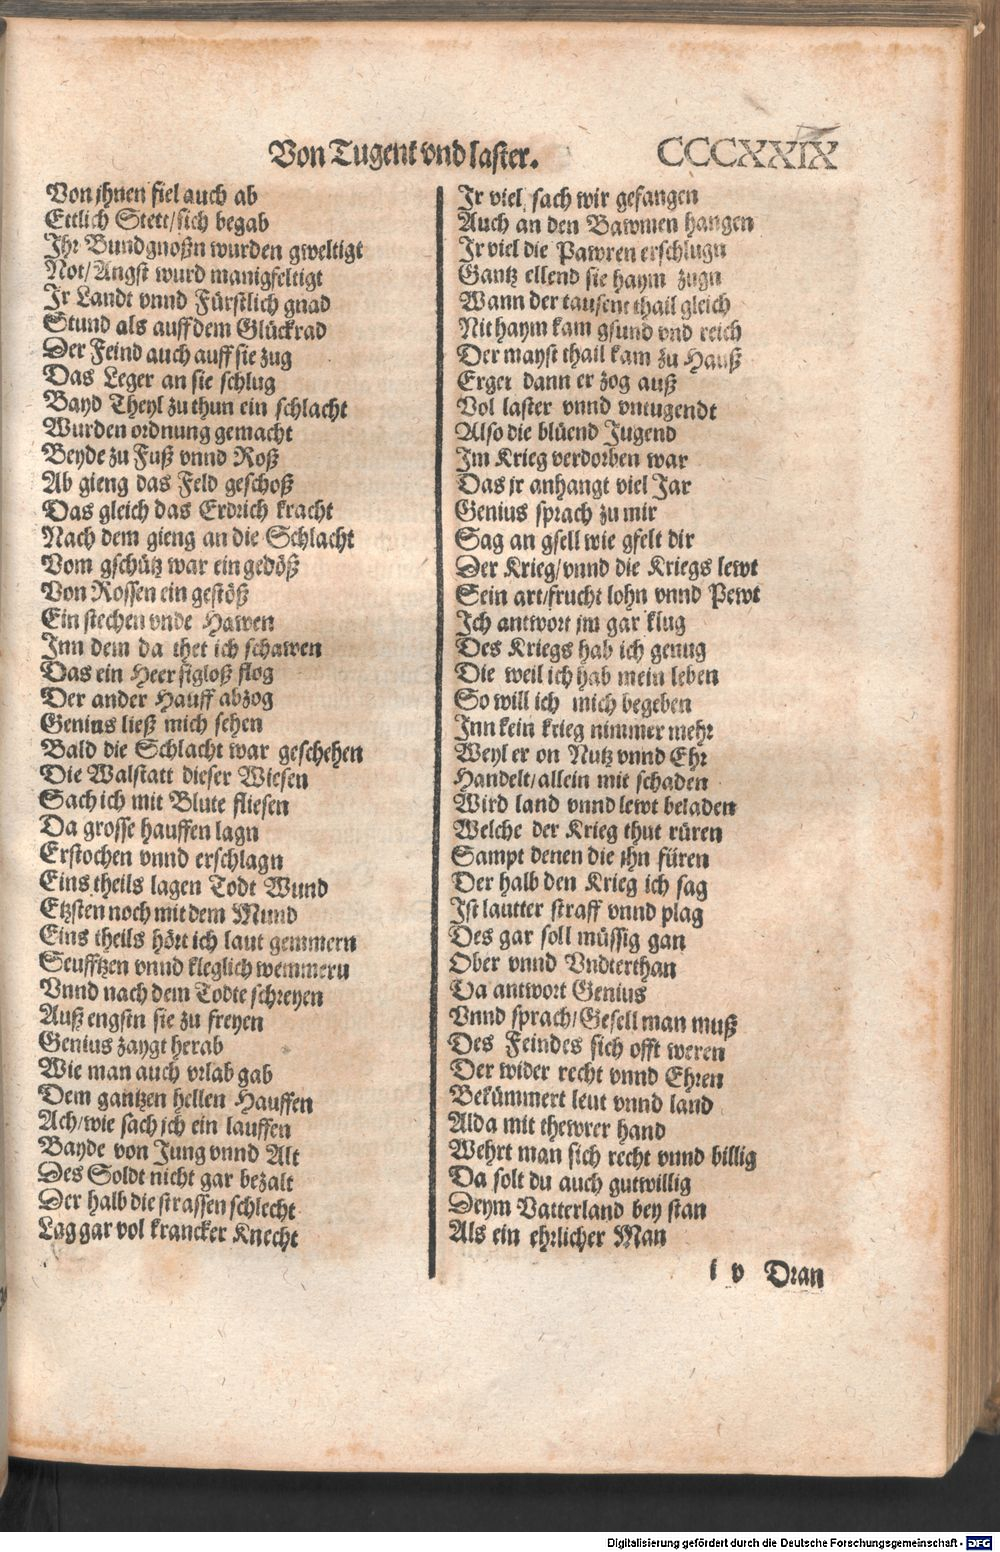 Von Tugent vnd laster. CCCXXIX
Von jhnen fiel auch ab
Ettlich Stett/sich begab
Ihr Bundgnoßn wurden gweltigt
Not/Angst wurd manigfeltigt
Ir Landt vnnd Fürstlich gnad
Stund als auff dem Glückrad
Der Feind auch auff sie zug
Das Leger an sie schlug
Bayd Theyl zu thun ein schlacht
Wurden ordnung gemacht
Beyde zu Fuß vnnd Roß
Ab gieng das Feld geschoß
Das gleich das Erdrich kracht
Nach dem gieng an die Schlacht
Vom gschütz war ein gedöß
Von Rossen ein gestöß
Ein stechen vnde Hawen
Inn dem da thet ich schawen
Das ein Heer sigloß flog
Der ander Hauff abzog
Genius ließ mich sehen
Bald die Schlacht war geschehen
Die Walstatt dieser Wiesen
Sach ich mit Blute fliesen
Da grosse hauffen lagn
Erstochen vnnd erschlagn
Eins theils lagen Todt Wund
Etzsten noch mit dem Mund
Eins theils hört ich laut gemmern
Seufftzen vnnd kleglich wemmern
Vnnd nach dem Todte schreyen
Auß engstn sie zu freyen
Genius zaygt herab
Wie man auch vrlab gab
Dem gantzen hellen Hauffen
Ach/wie sach jch ein lauffen
Bayde von Jung vnnd Alt
Des Soldt nicht gar bezalt
Der halb die strassen schlecht
Lag gar vol krancker Knecht
Ir viel sach wir gefangen
Auch an den Bawmen hangen
Ir viel die Pawren erschlugn
Gantz ellend sie haym zugn
Wann der tausent thail gleich
Nit haym kam gsund vnd reich
Der mayst thail kam zu Hauß
Erger dann er zog auß
Vol laster vnnd vntugendt
Also die blüend Jugend
Im Krieg verdorben war
Das jr anhangt viel Jar
Genius sprach zu mir
Sag an gsell wie gfelt dir
Der Krieg/vnnd die Kriegs lewt
Sein art/frucht lohn vnnd Pewt
Ich antwort jm gar klug
Des Kriegs hab ich genug
Die weil ich hab mein leben
So will ich mich begeben
Inn kein krieg nimmer mehr
Weyl er on Nutz vnnd Ehr
Handelt/allein mit schaden
Wird land vnnd lewt beladen
Welche der Krieg thut rüren
Sampt denen die jhn füren
Der halb den Krieg ich sag
Ist lautter straff vnnd plag
Des gar soll müssig gan
Ober vnnd Vndterthan
Da antwort Genius
Vnnd sprach/Gesell man muß
Des Feindes sich offt weren
Der wider recht vnnd Ehren
Bekümmert leut vnnd land
Alda mit thewrer hand
Wehrt man sich recht vnnd billig
Da solt du auch gutwillig
Deym Vatterland bey stan
Als ein ehrlicher Man
i v Dran
Digitalisierung gefördert durch die Deutsche Forschungsgemeinschaft - DFG